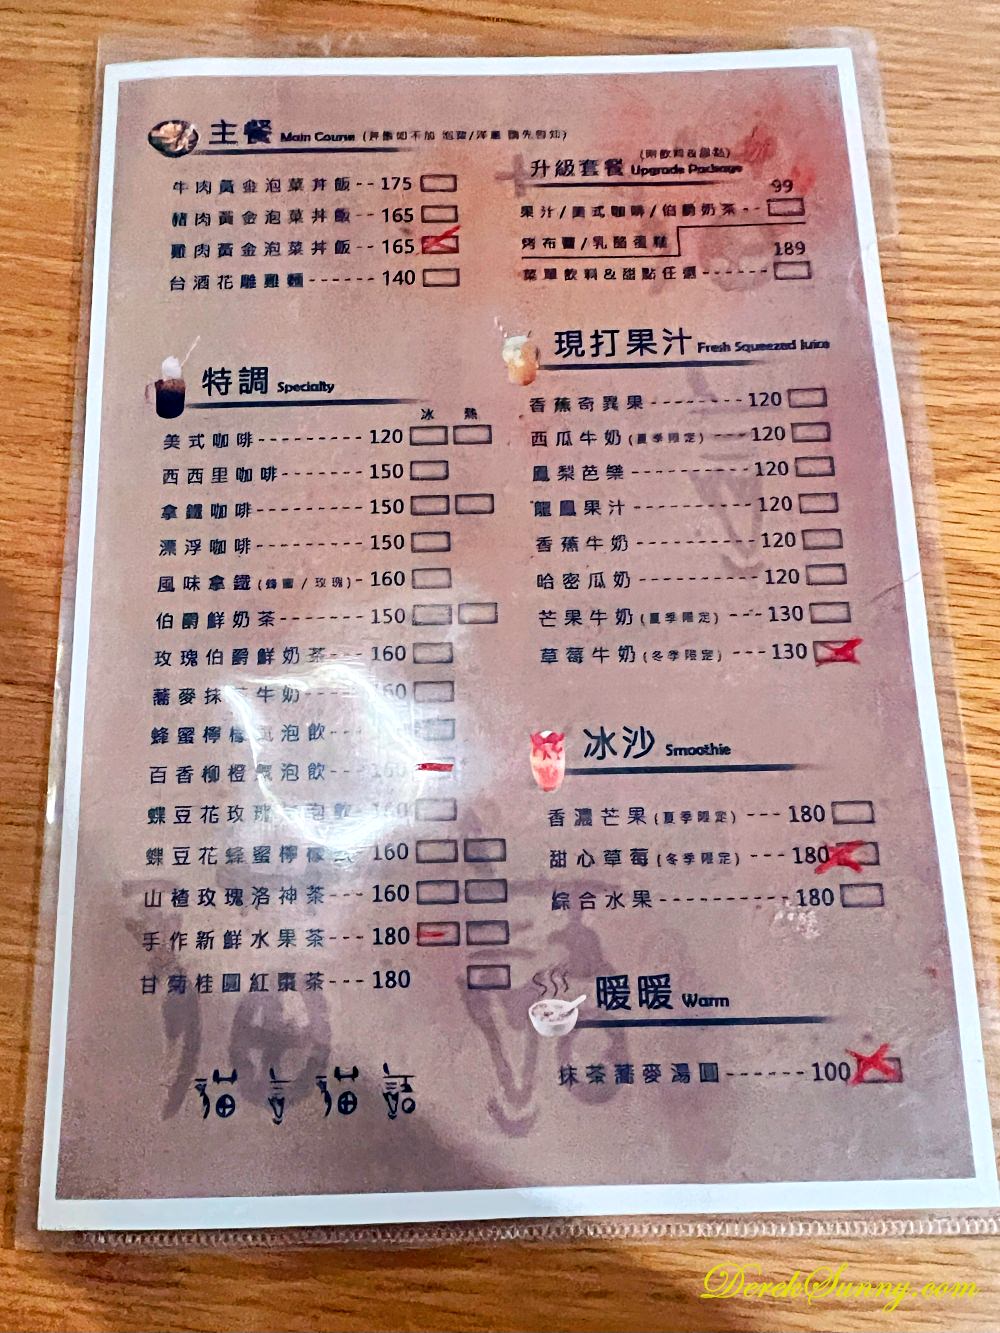 主餐 Main Course (丼飯如不加 泡菜/洋蔥 請先告知)
牛肉黃金泡菜丼飯--175
豬肉黃金泡菜丼飯--165
雞肉黃金泡菜丼飯--165
台酒花雕雞麵------140
(附飲料&甜點)
升級套餐 Upgrade Package
99
果汁/美式咖啡/伯爵奶茶--
烤布蕾/乳酪蛋糕
189
菜單飲料&甜點任選------
特調 Specialty
冰 熱
美式咖啡---------120
西西里咖啡-------150
拿鐵咖啡---------150
漂浮咖啡---------150
風味拿鐵(蜂蜜/玫瑰)-160
伯爵鮮奶茶-------150
玫瑰伯爵鮮奶茶--160
蕎麥抹茶牛奶----160
蜂蜜檸檬氣泡飲--
百香柳橙氣泡飲---160
蝶豆花玫瑰氣泡飲 160
蝶豆花蜂蜜檸檬 160
山楂玫瑰洛神茶---160
手作新鮮水果茶---180
甘菊桂圓紅棗茶---180
現打果汁 Fresh Squeezed Juice
香蕉奇異果--------120
西瓜牛奶(夏季限定)---120
鳳梨芭樂----------120
龍鳳果汁----------120
香蕉牛奶----------120
哈密瓜奶----------120
芒果牛奶(夏季限定)---130
草莓牛奶(冬季限定)---130
冰沙 Smoothie
香濃芒果(夏季限定)---180
甜心草莓(冬季限定)---180
綜合水果-----------180
暖暖 Warm
抹茶蕎麥湯圓------100
DerekSunny.com